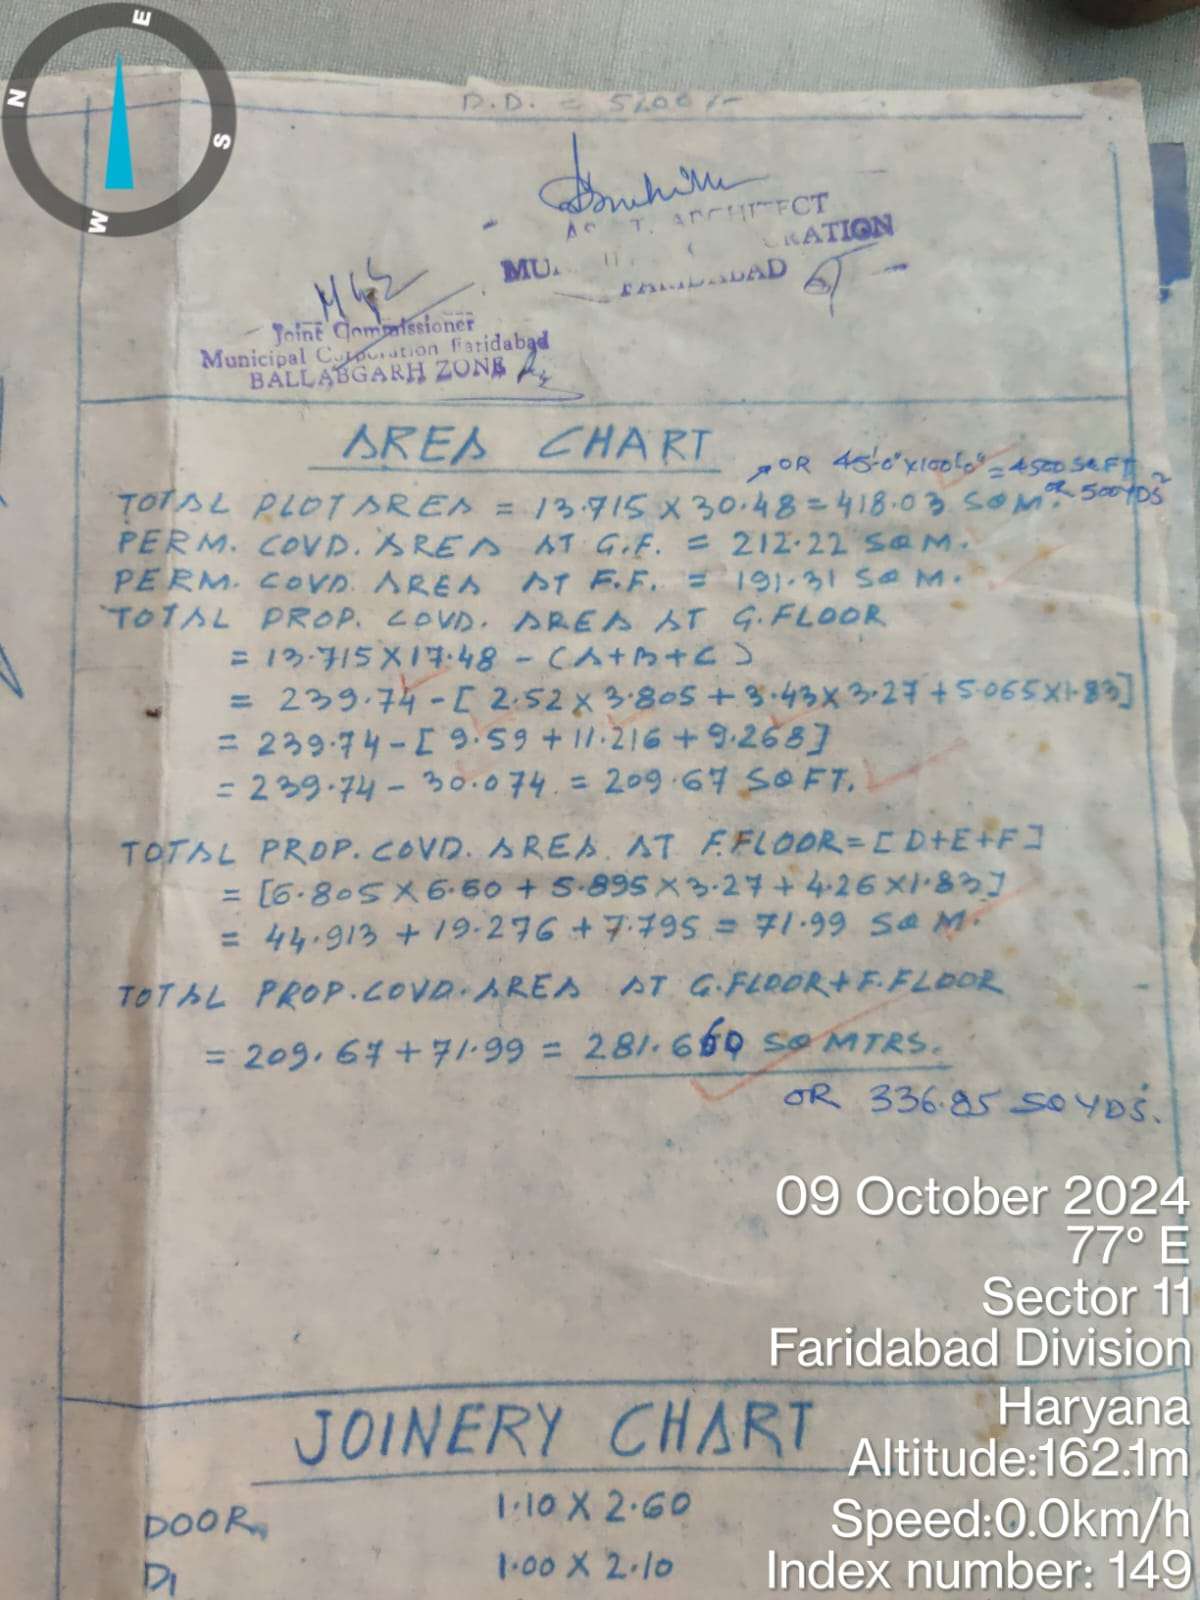 E
N
S
W
D.D. =
ARCHITECT
FARIDABAD
Joint Commissioner
Municipal Corporation Faridabad
BALLABGARH ZONE
AREA CHART
OR 45'-0" X 100'-0" = 4500 SQ FT
OR 500 YDS
TOTAL PLOT AREA = 13.715 X 30.48 = 418.03 SQ M.
PERM. COVD. AREA AT G.F. = 212.22 SQ M.
PERM. COVD. AREA AT F.F. = 191.31 SQ M.
TOTAL PROP. COVD. AREA AT G.FLOOR
= 13.715 X 17.48 - (A+B+C)
= 239.74 - [2.52 X 3.805 + 3.43 X 3.27 + 5.065 X 1.83]
= 239.74 - [9.59 + 11.216 + 9.268]
= 239.74 - 30.074 = 209.67 SQ FT.
TOTAL PROP. COVD. AREA AT F.FLOOR = [D+E+F]
= [6.805 X 6.60 + 5.895 X 3.27 + 4.26 X 1.83]
= 44.913 + 19.276 + 7.795 = 71.99 SQ M.
TOTAL PROP. COVD. AREA AT G.FLOOR + F.FLOOR
= 209.67 + 71.99 = 281.660 SQ MTRS.
OR 336.85 SQ YDS.
09 October 2024
77° E
Sector 11
Faridabad Division
Haryana
Altitude:162.1m
Speed:0.0km/h
Index number: 149
JOINERY CHART
DOOR, 1.10 X 2.60
D1 1.00 X 2.10